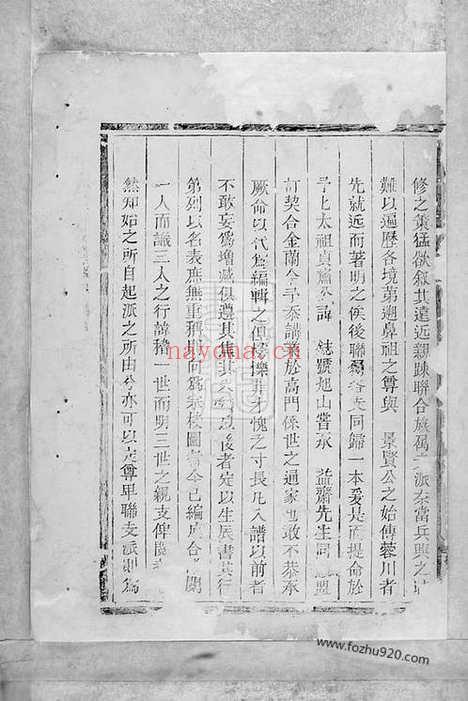 修之策猛欲叙其遠近親疎聯合族属派奈當兵興之
難以遍歷各境第遡鼻祖之尊與 景賢公之始傳蓉川者
先就近而著明之俟後聯屬各 同歸一本爰是而提命於
予上太祖貞 公諱 號旭山嘗承 益齋先生同 盟
訂契合金蘭今予忝講 於高門係世之通家也敢不恭承
厥命以代為編輯之但 操 才愧之寸長凡入譜以前者
不敢妄為增减俱遵其舊其 以後者定以生辰書其行
第列以名表庶無重 何為宗枝圖 今已編成合 閱
一人而識三人之行諱稽一世而明三世之親支俾閱
然知始之所自起派之所由分亦可以定尊卑聯支派則為
nayona.cn
www.fozhu920.com